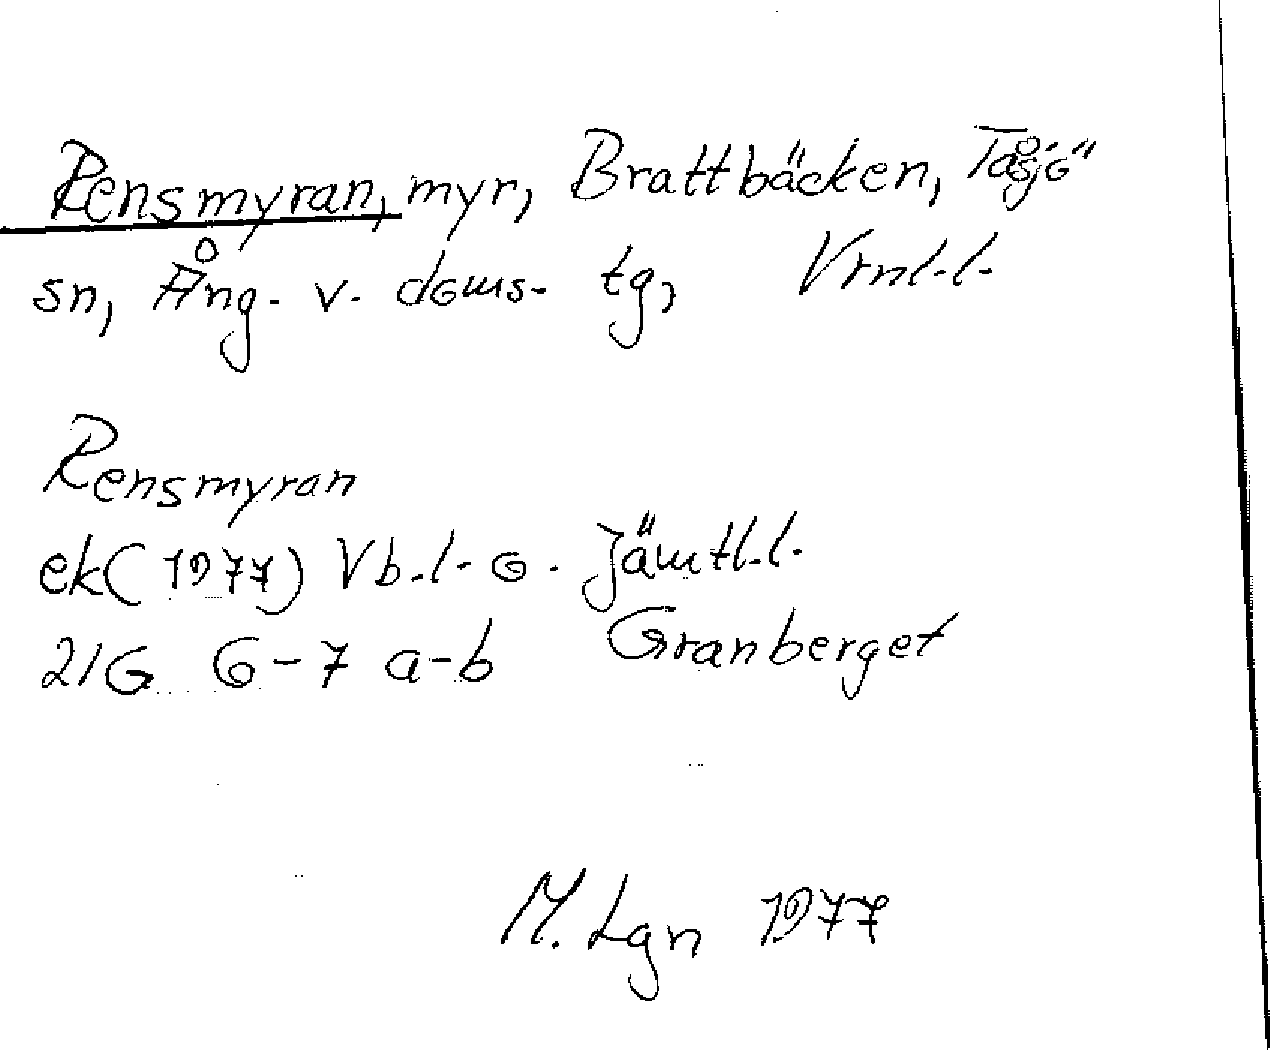 Rensmyran, myr, Brattbäcken, Tåsjö
sn, Ång. v. doms. tg, Vrnl.l.
Rensmyran
ek (1977) Vb.l. o. Jämtl.l.
21G 6-7 a-b Granberget
M. Lgn 1977